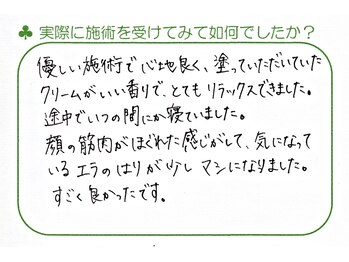 ♣ 実際に施術を受けてみて如何でしたか？
優しい施術で心地良く、塗っていただいていた
クリームがいい香りで、とてもリラックスできました。
途中でいつの間にか寝ていました。
顔の筋肉がほぐれた感じがして、気になって
いるエラのはりが少しマシになりました。
すごく良かったです。